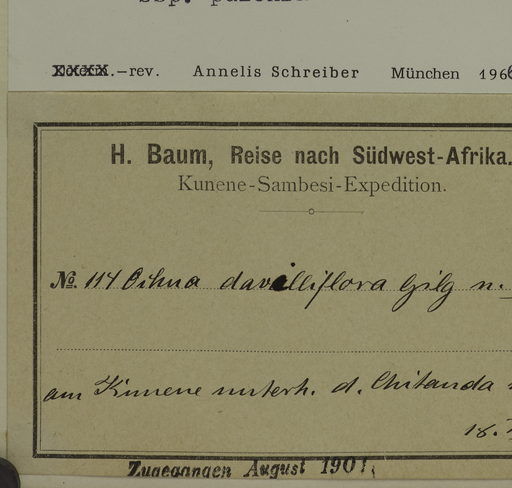 ssp.
.-rev. Annelis Schreiber München 1966
H. Baum, Reise nach Südwest-Afrika.
Kunene-Sambesi-Expedition.
No. 114 Ochna davilliflora Gilg n.
am Kunene unterh. d. Chitanda
18.
Zugegangen August 1901.